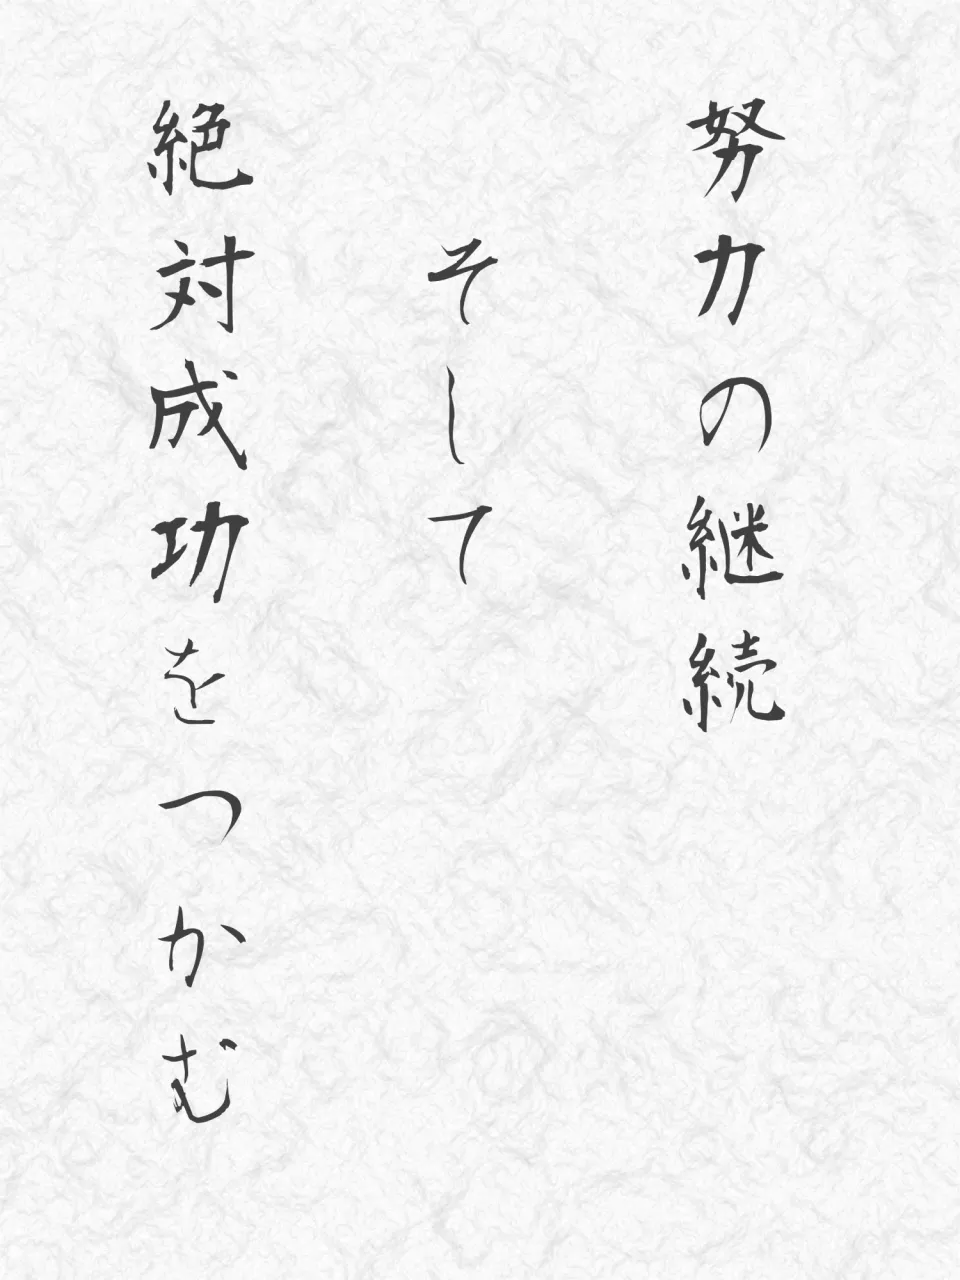 努力の継続
そして
絶対成功をつかむ